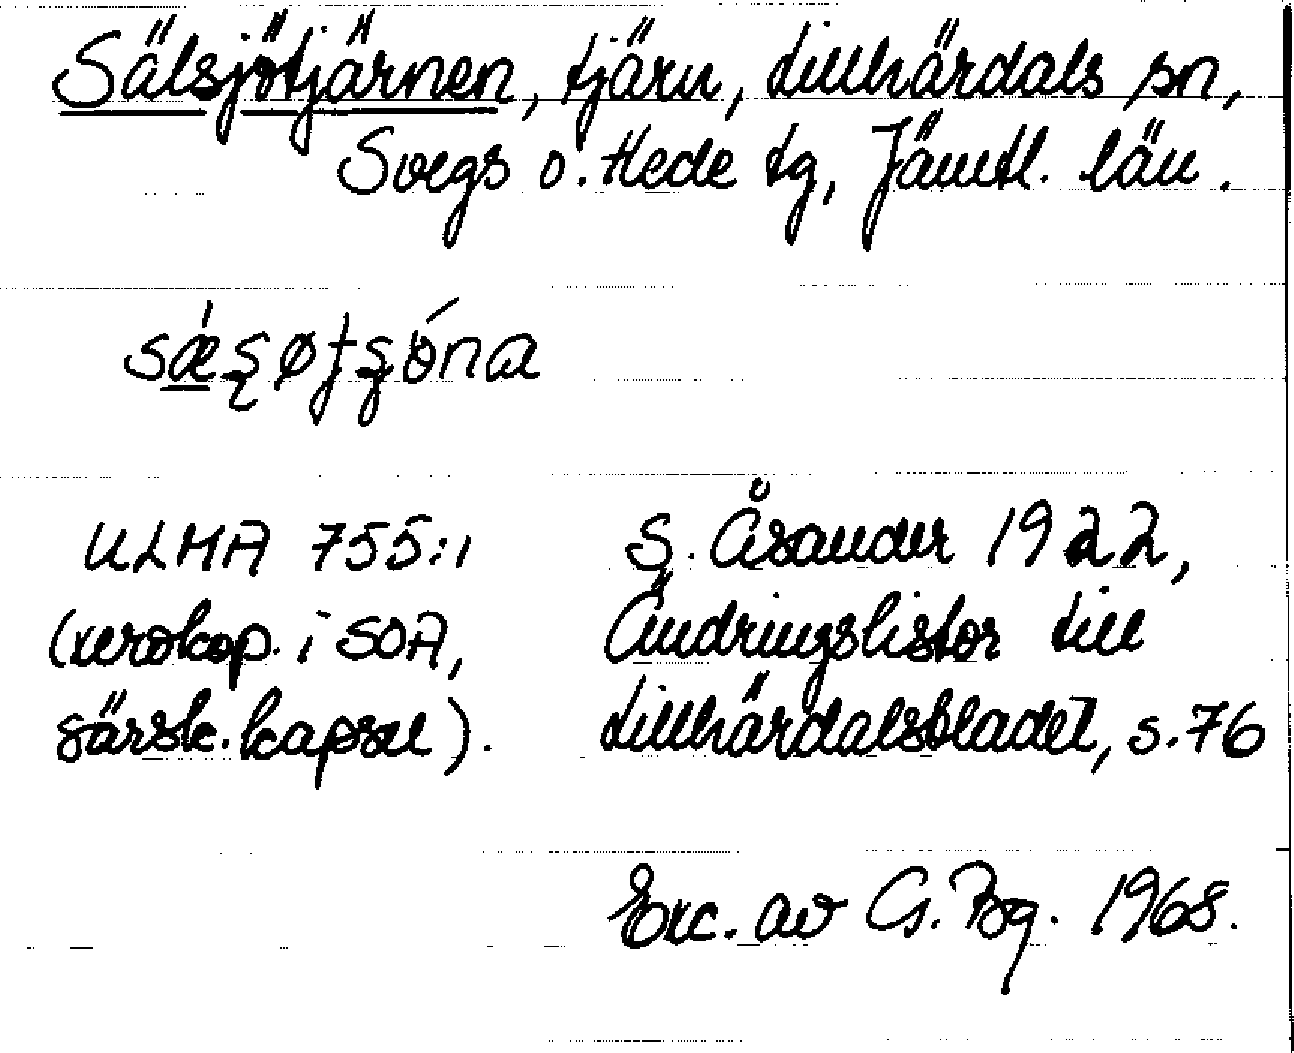 Sälsjötjärnen, tjärn, Lillhärdals sn,
Svegs o. Hede tg, Jämtl. län.
ULMA 755:1
(xerokop. i SOA,
särsk. kapsel).
S. Åsander 1922,
Ändringslistor till
Lillhärdalsbladet, s. 76
Exc. av G. Bg. 1968.